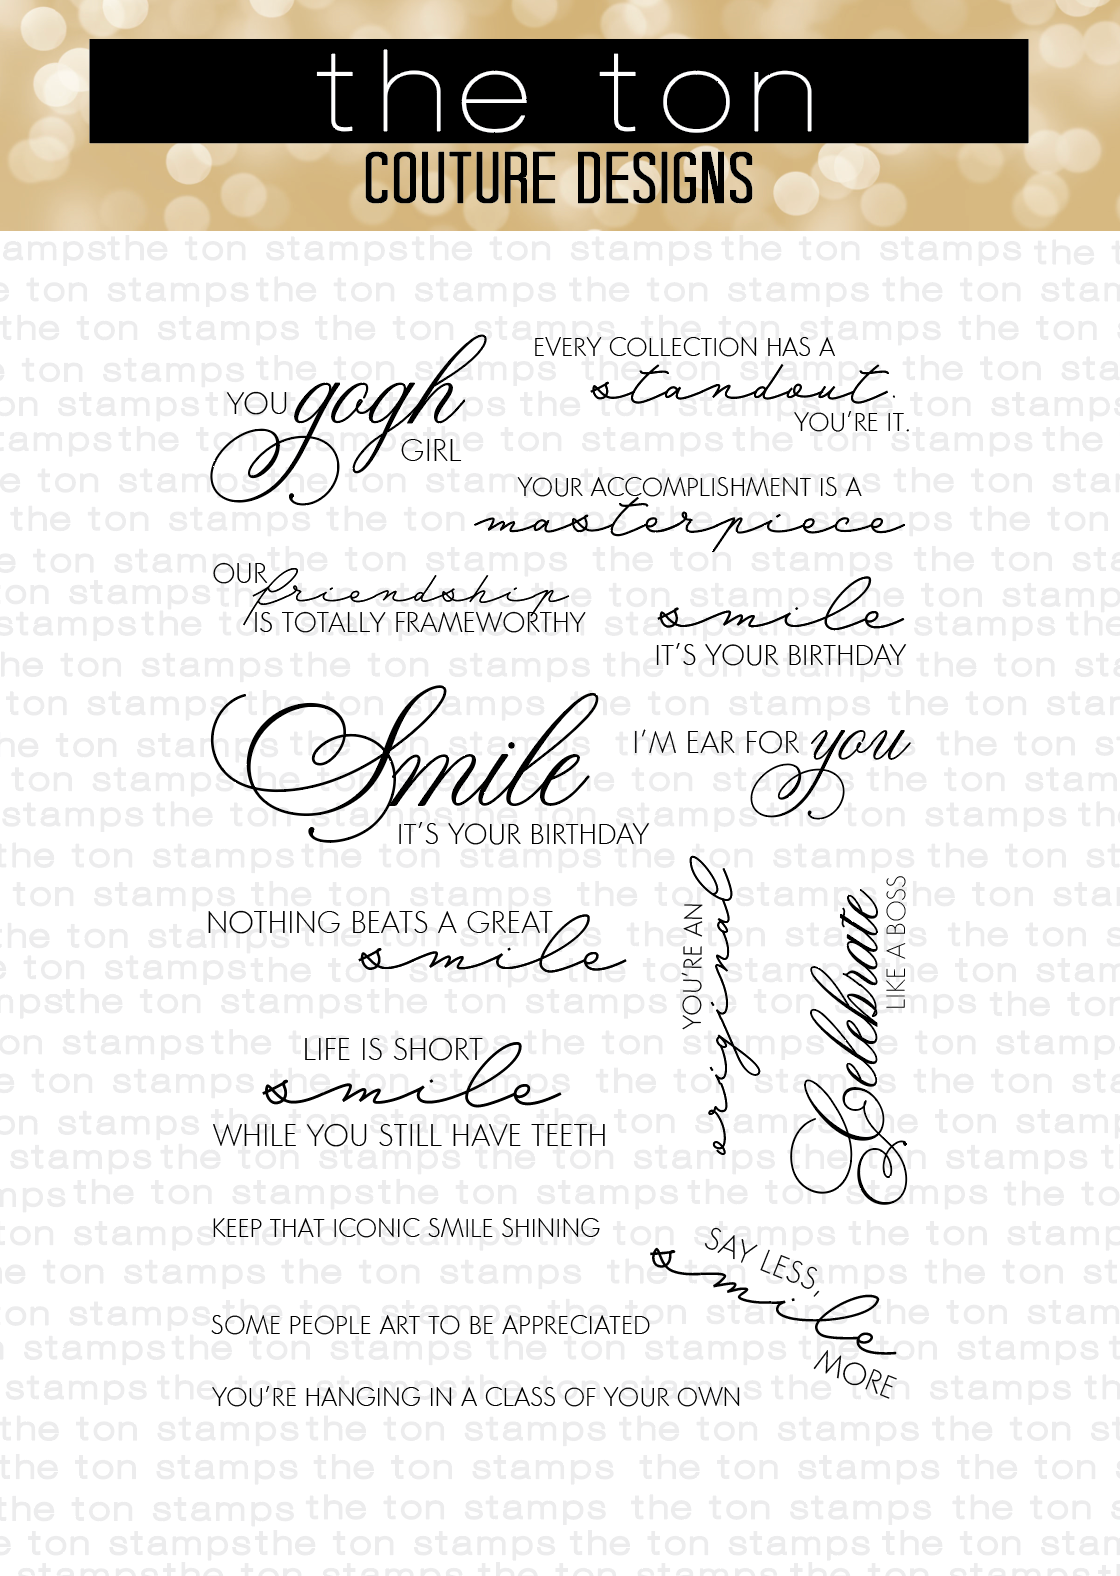 the ton
COUTURE DESIGNS
YOU gogh
GIRL
EVERY COLLECTION HAS A
standout.
YOU'RE IT.
YOUR ACCOMPLISHMENT IS A
masterpiece
OUR friendship
IS TOTALLY FRAMEWORTHY
smile
IT'S YOUR BIRTHDAY
Smile
IT'S YOUR BIRTHDAY
I'M EAR FOR you
NOTHING BEATS A GREAT
smile
YOU'RE AN
original
Celebrate
LIKE A BOSS
LIFE IS SHORT
smile
WHILE YOU STILL HAVE TEETH
KEEP THAT ICONIC SMILE SHINING
SAY LESS,
smile
MORE
SOME PEOPLE ART TO BE APPRECIATED
YOU'RE HANGING IN A CLASS OF YOUR OWN